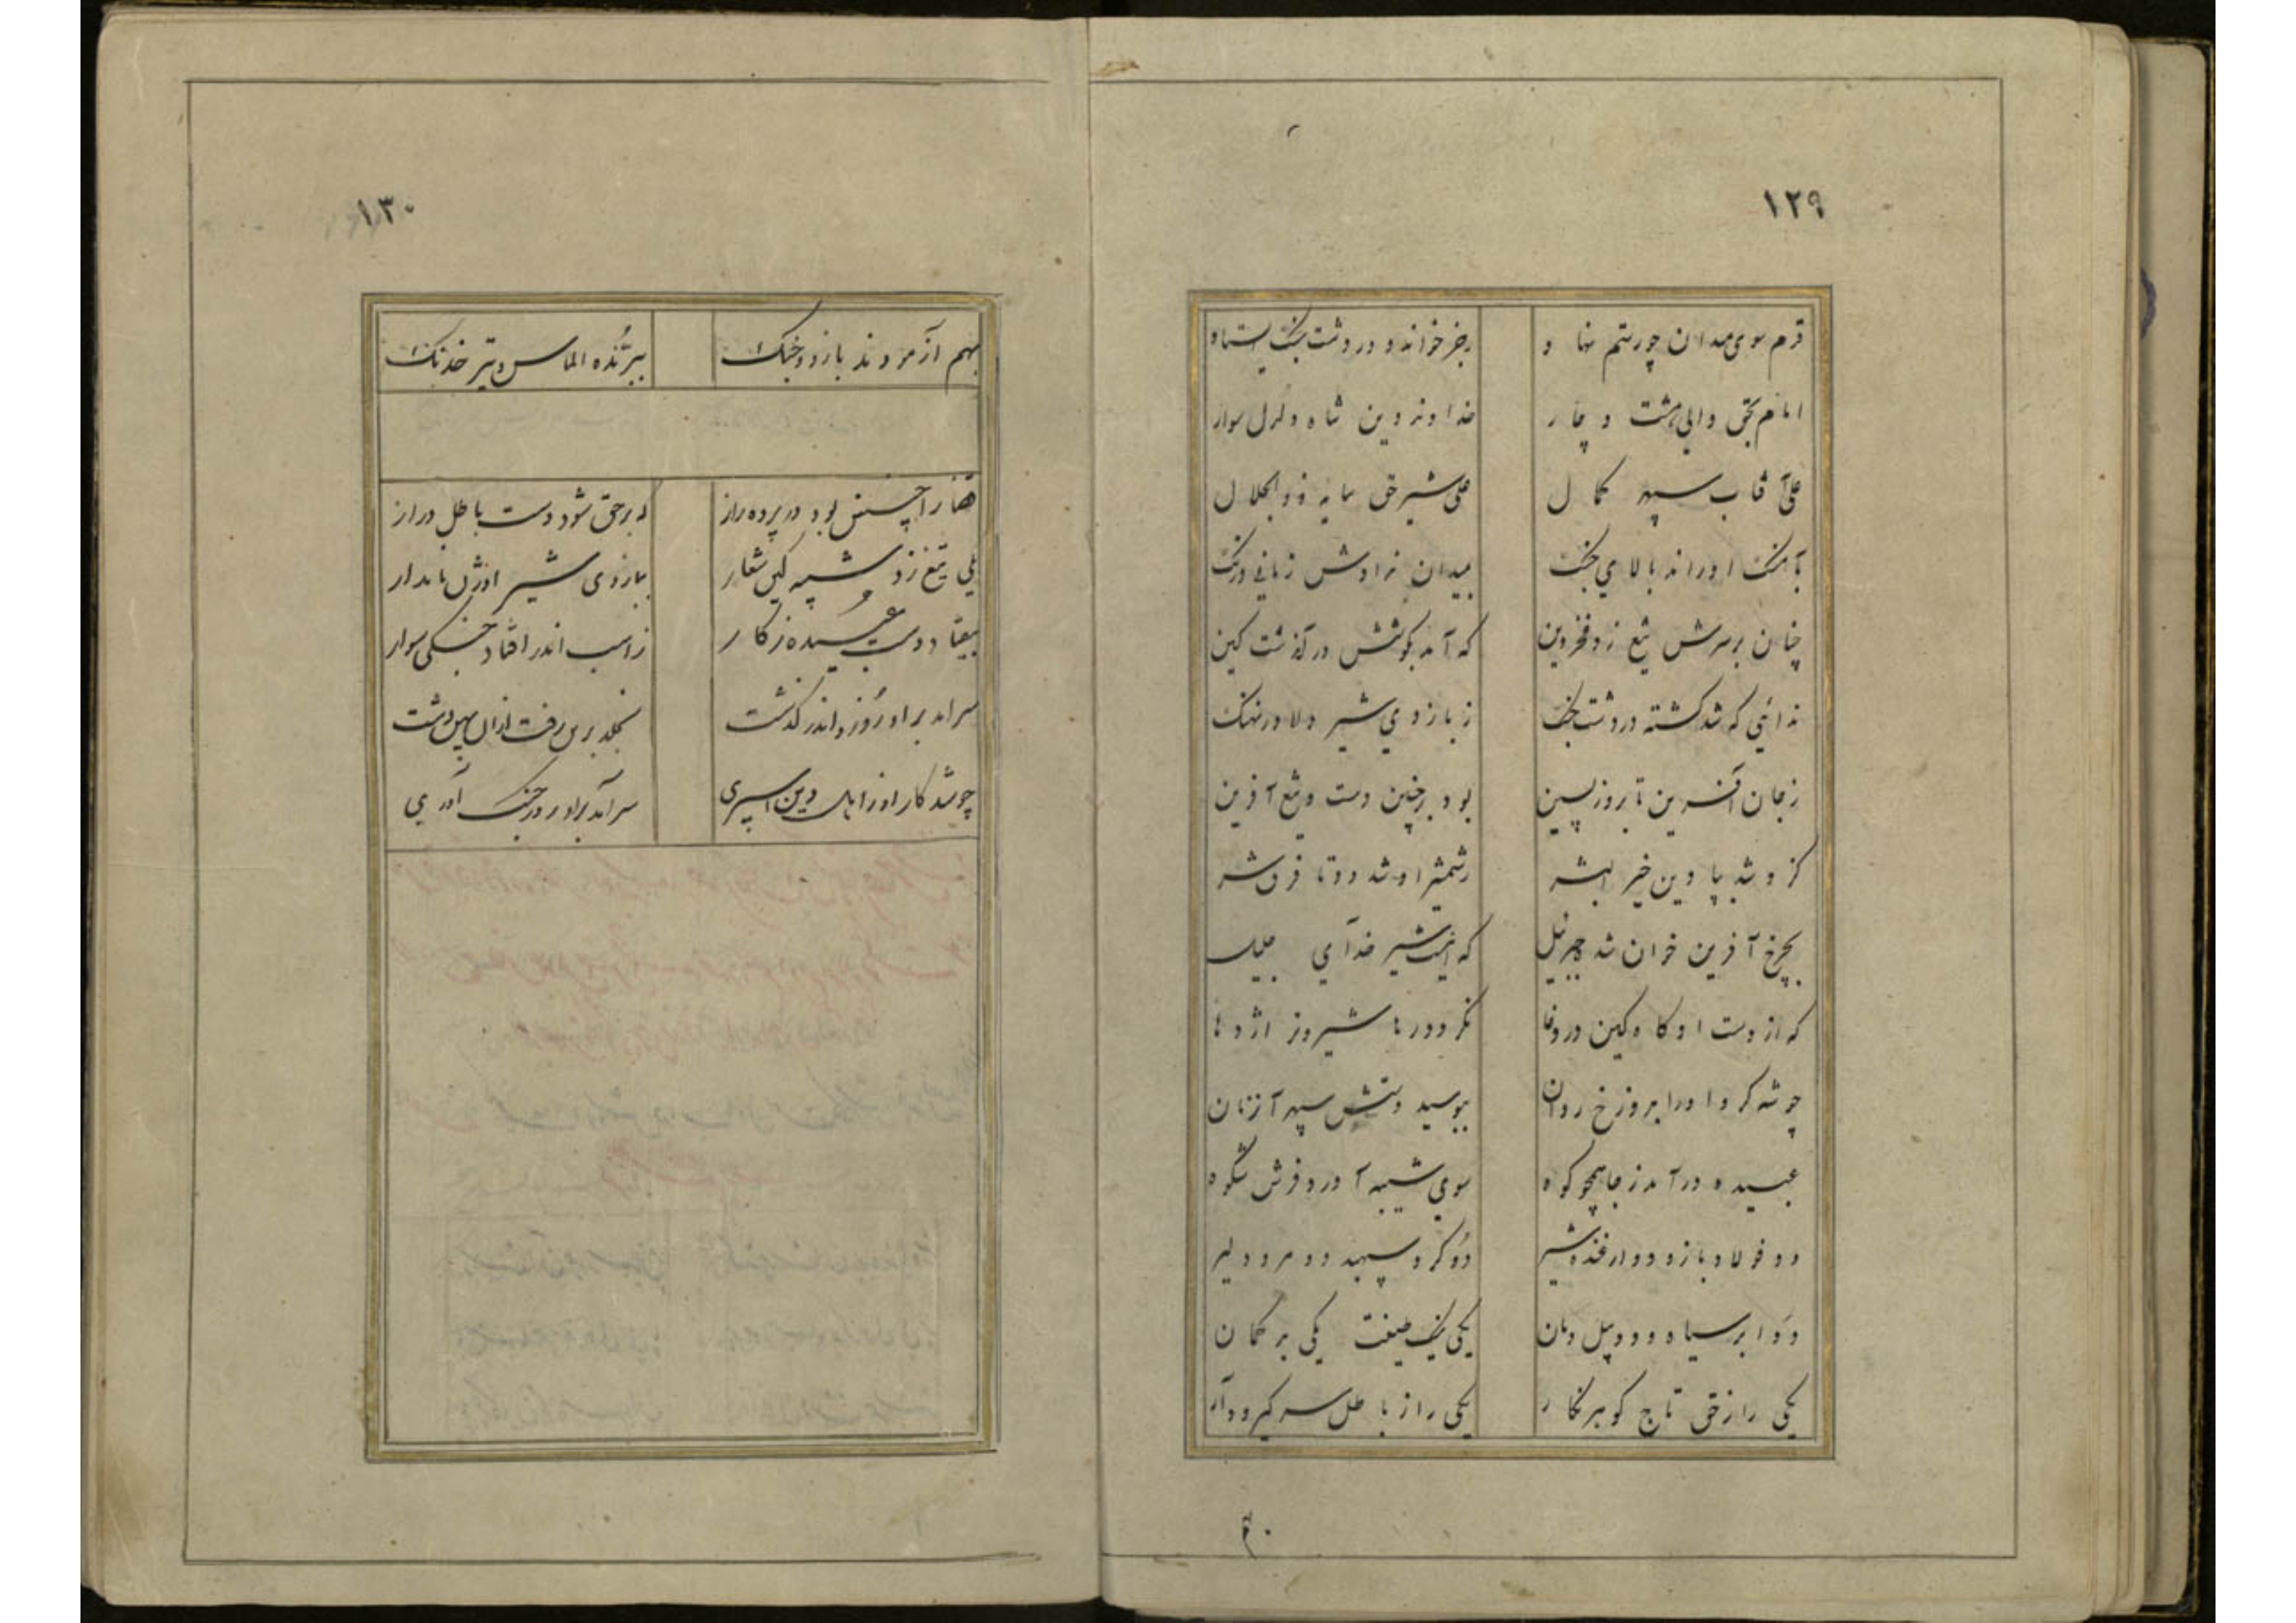 ١٢٩
قدم سوی میدان چو رستم نهاد
رجز خواند و در دشت جنگ ایستاد
امام بحق والی هشت و چار
خداوند دین شاه دلدل سوار
علی آفتاب سپهر کمال
علی شیر حق سایه ذوالجلال
بآهنگ او راند بالای جنگ
بمیدان ندادش زمانی درنگ
چنان بر سرش تیغ زد فخر دین
که آمد بکوشش درگذشت کین
ندانی که شد کشته در دشت جنگ
ز بازوی شیر دلاور نهنگ
ز جان آفرین تا بروز پسین
بود بر چنین دست و تیغ آفرین
کزو شد بپا دین خیر البشر
ز شمشیر او شد دوتا فرق شر
بچرخ آفرین خوان شد جبرئیل
که اینست شیر خدای جلیل
که از دست او گاه کین در وغا
نگردد رها شیر و نر اژدها
چو شه کرد او را بدوزخ روان
ببوسید دستش سپهر آن زمان
عبیده درآمد ز جا همچو کوه
سوی شیبه آورد فرش شکوه
دو فولاد بازو دو ارغنده شیر
دو گرد سپهبد دو مرد دلیر
دو ابر سیاه و دو پیل دمان
یکی یک صفت یکی بر گمان
یکی را ز حق تاج گوهر نگار
یکی را ز باطل سر گیرودار
١٣٠
بهم آزمودند بازو و جنگ
ببرّنده الماس و تیر خدنگ
قضا را چنین بود در پرده راز
که بر حق شود دست باطل دراز
یلی تیغ زد شیبه کین شعار
ببازوی شیر اوژن نامدار
بیفتاد دست عبیده ز کار
ز اسب اندر افتاد جنگی سوار
سرآمد بر او روز و اندر گذشت
بخلد برین رفت ازان پهن دشت
چو شد کار او ز اهل دین اسپری
سرآمد بر او روز جنگ آوری